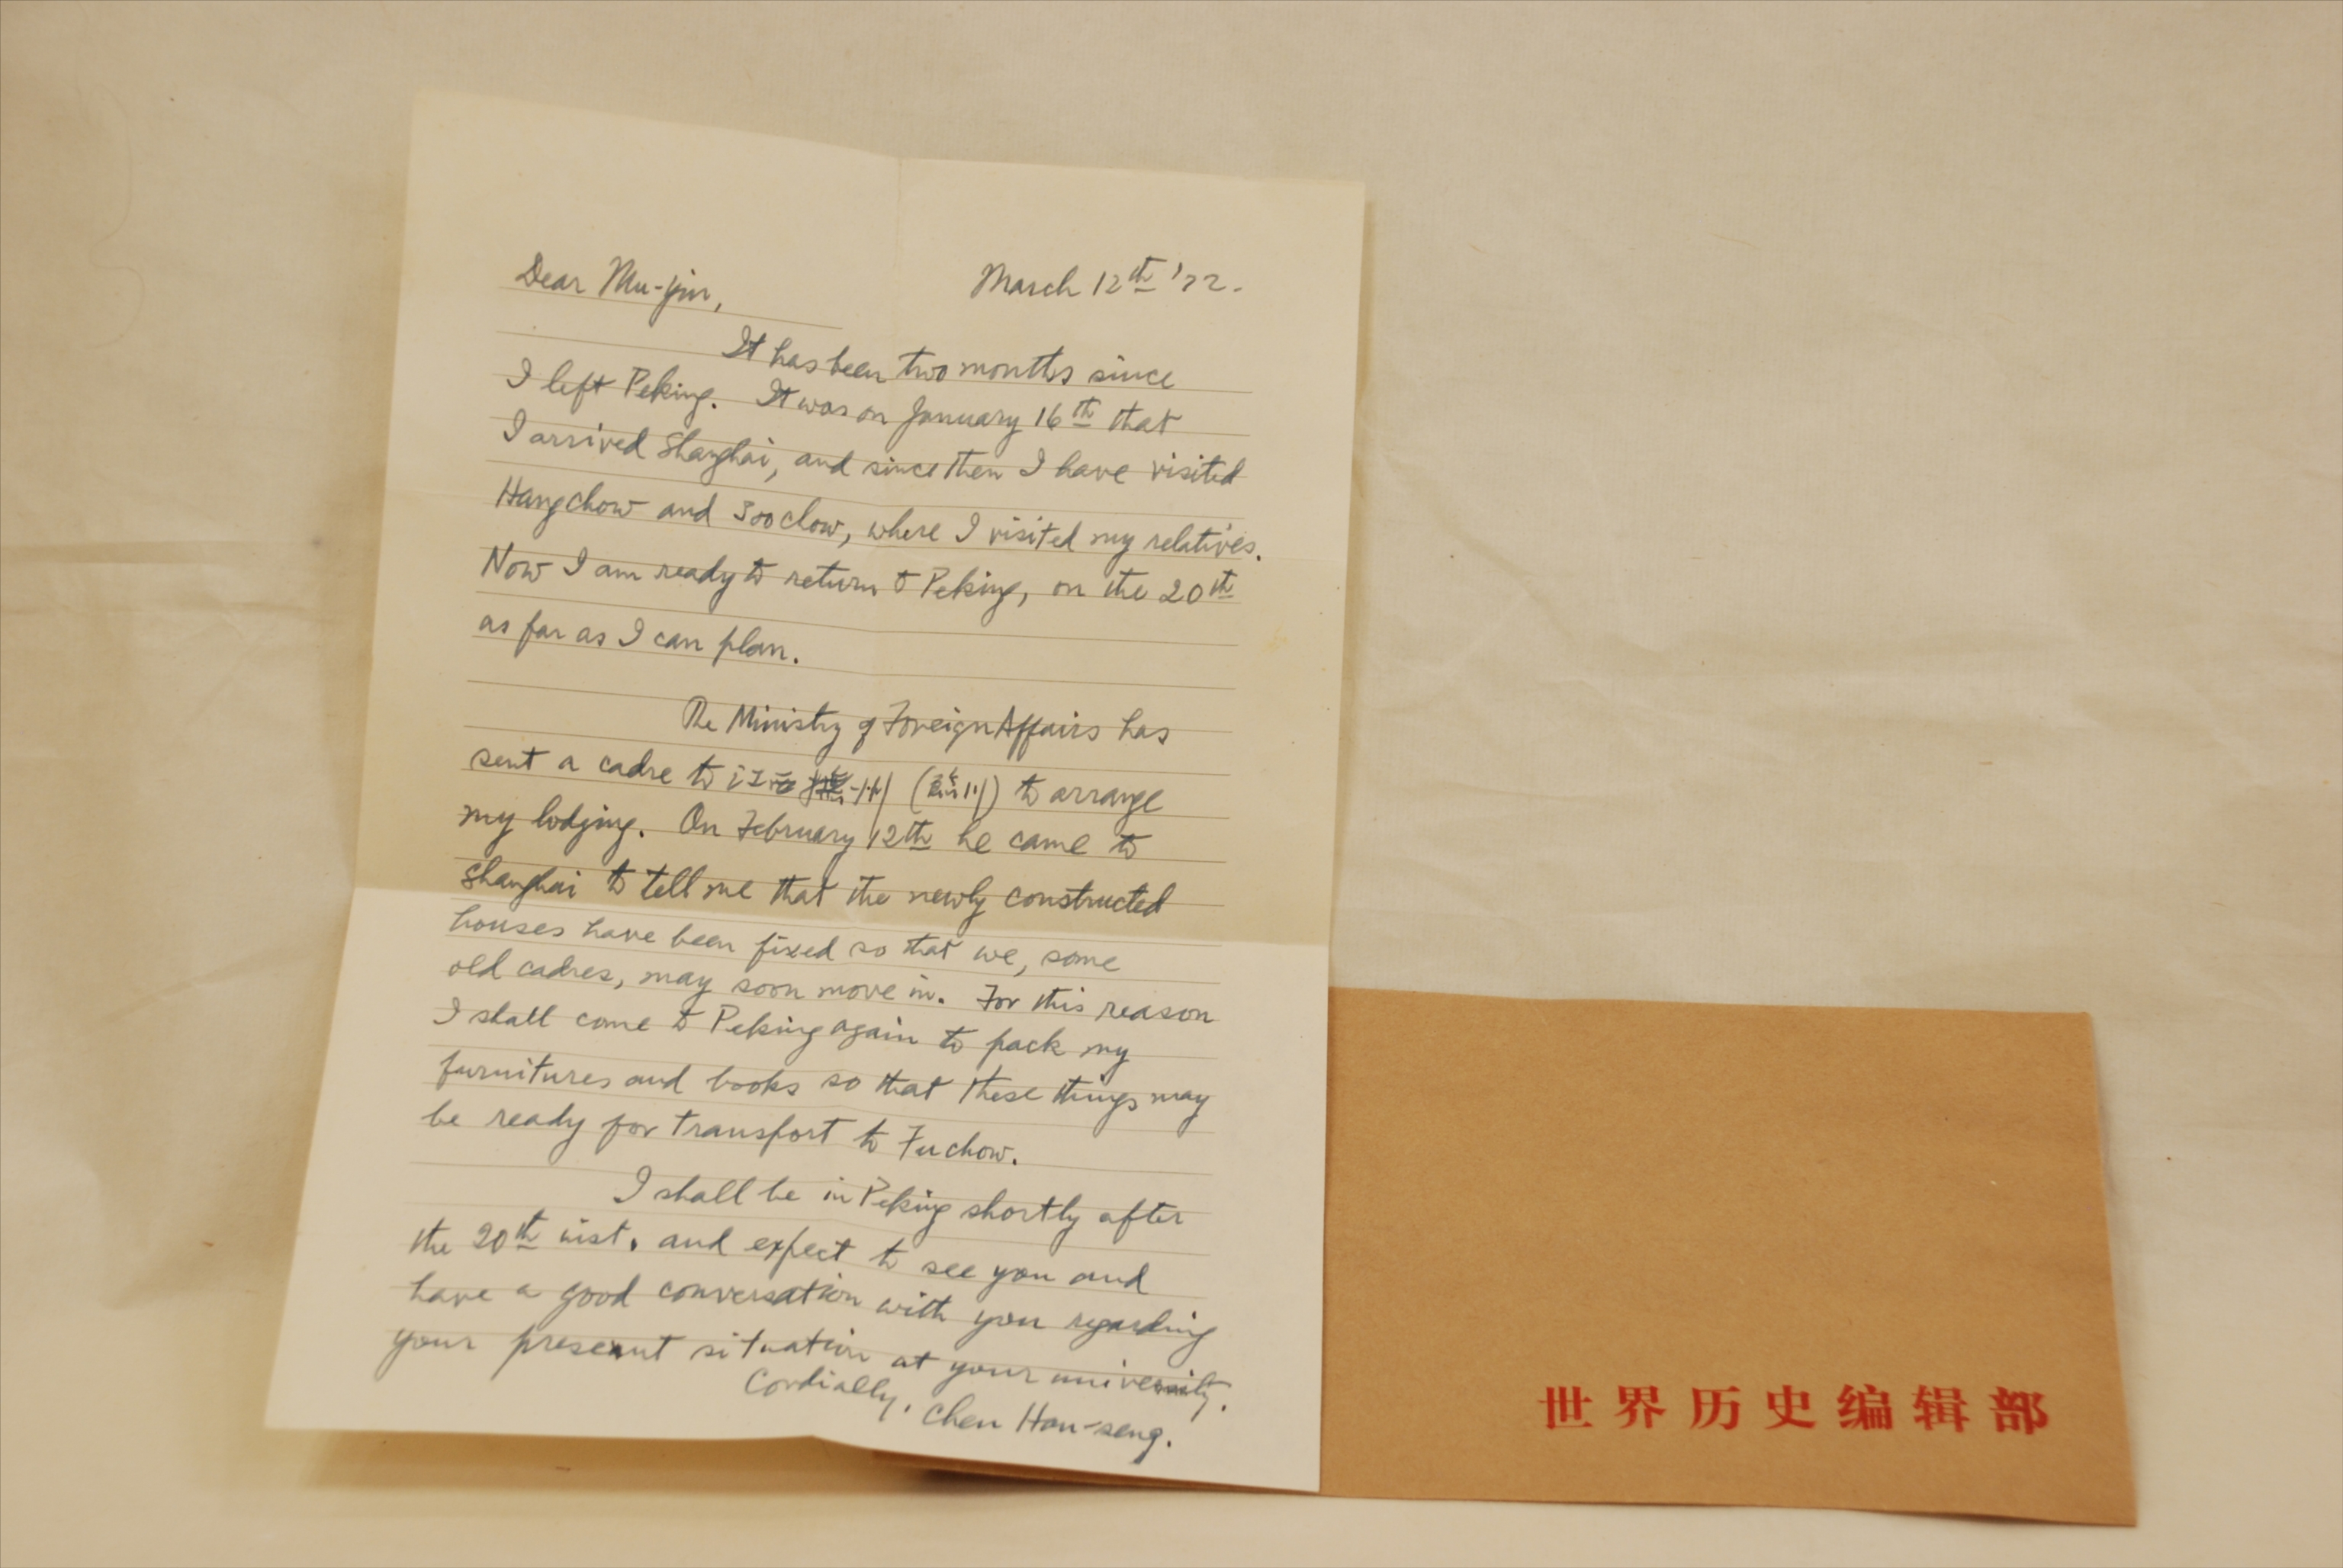 Dear Mu-yin,
March 12th '72.
It has been two months since
I left Peking. It was on January 16th that
I arrived Shanghai, and since then I have visited
Hangchow and Soochow, where I visited my relatives.
Now I am ready to return to Peking, on the 20th
as far as I can plan.
The Ministry of Foreign Affairs has
sent a cadre to 江西 州 (臨川) to arrange
my lodging. On February 12th he came to
Shanghai to tell me that the newly constructed
houses have been fixed so that we, some
old cadres, may soon move in. For this reason
I shall come to Peking again to pack my
furnitures and books so that these things may
be ready for transport to Fuchow.
I shall be in Peking shortly after
the 20th inst. and expect to see you and
have a good conversation with you regarding
your present situation at your university.
Cordially,
Chen Han-seng.
世界历史编辑部